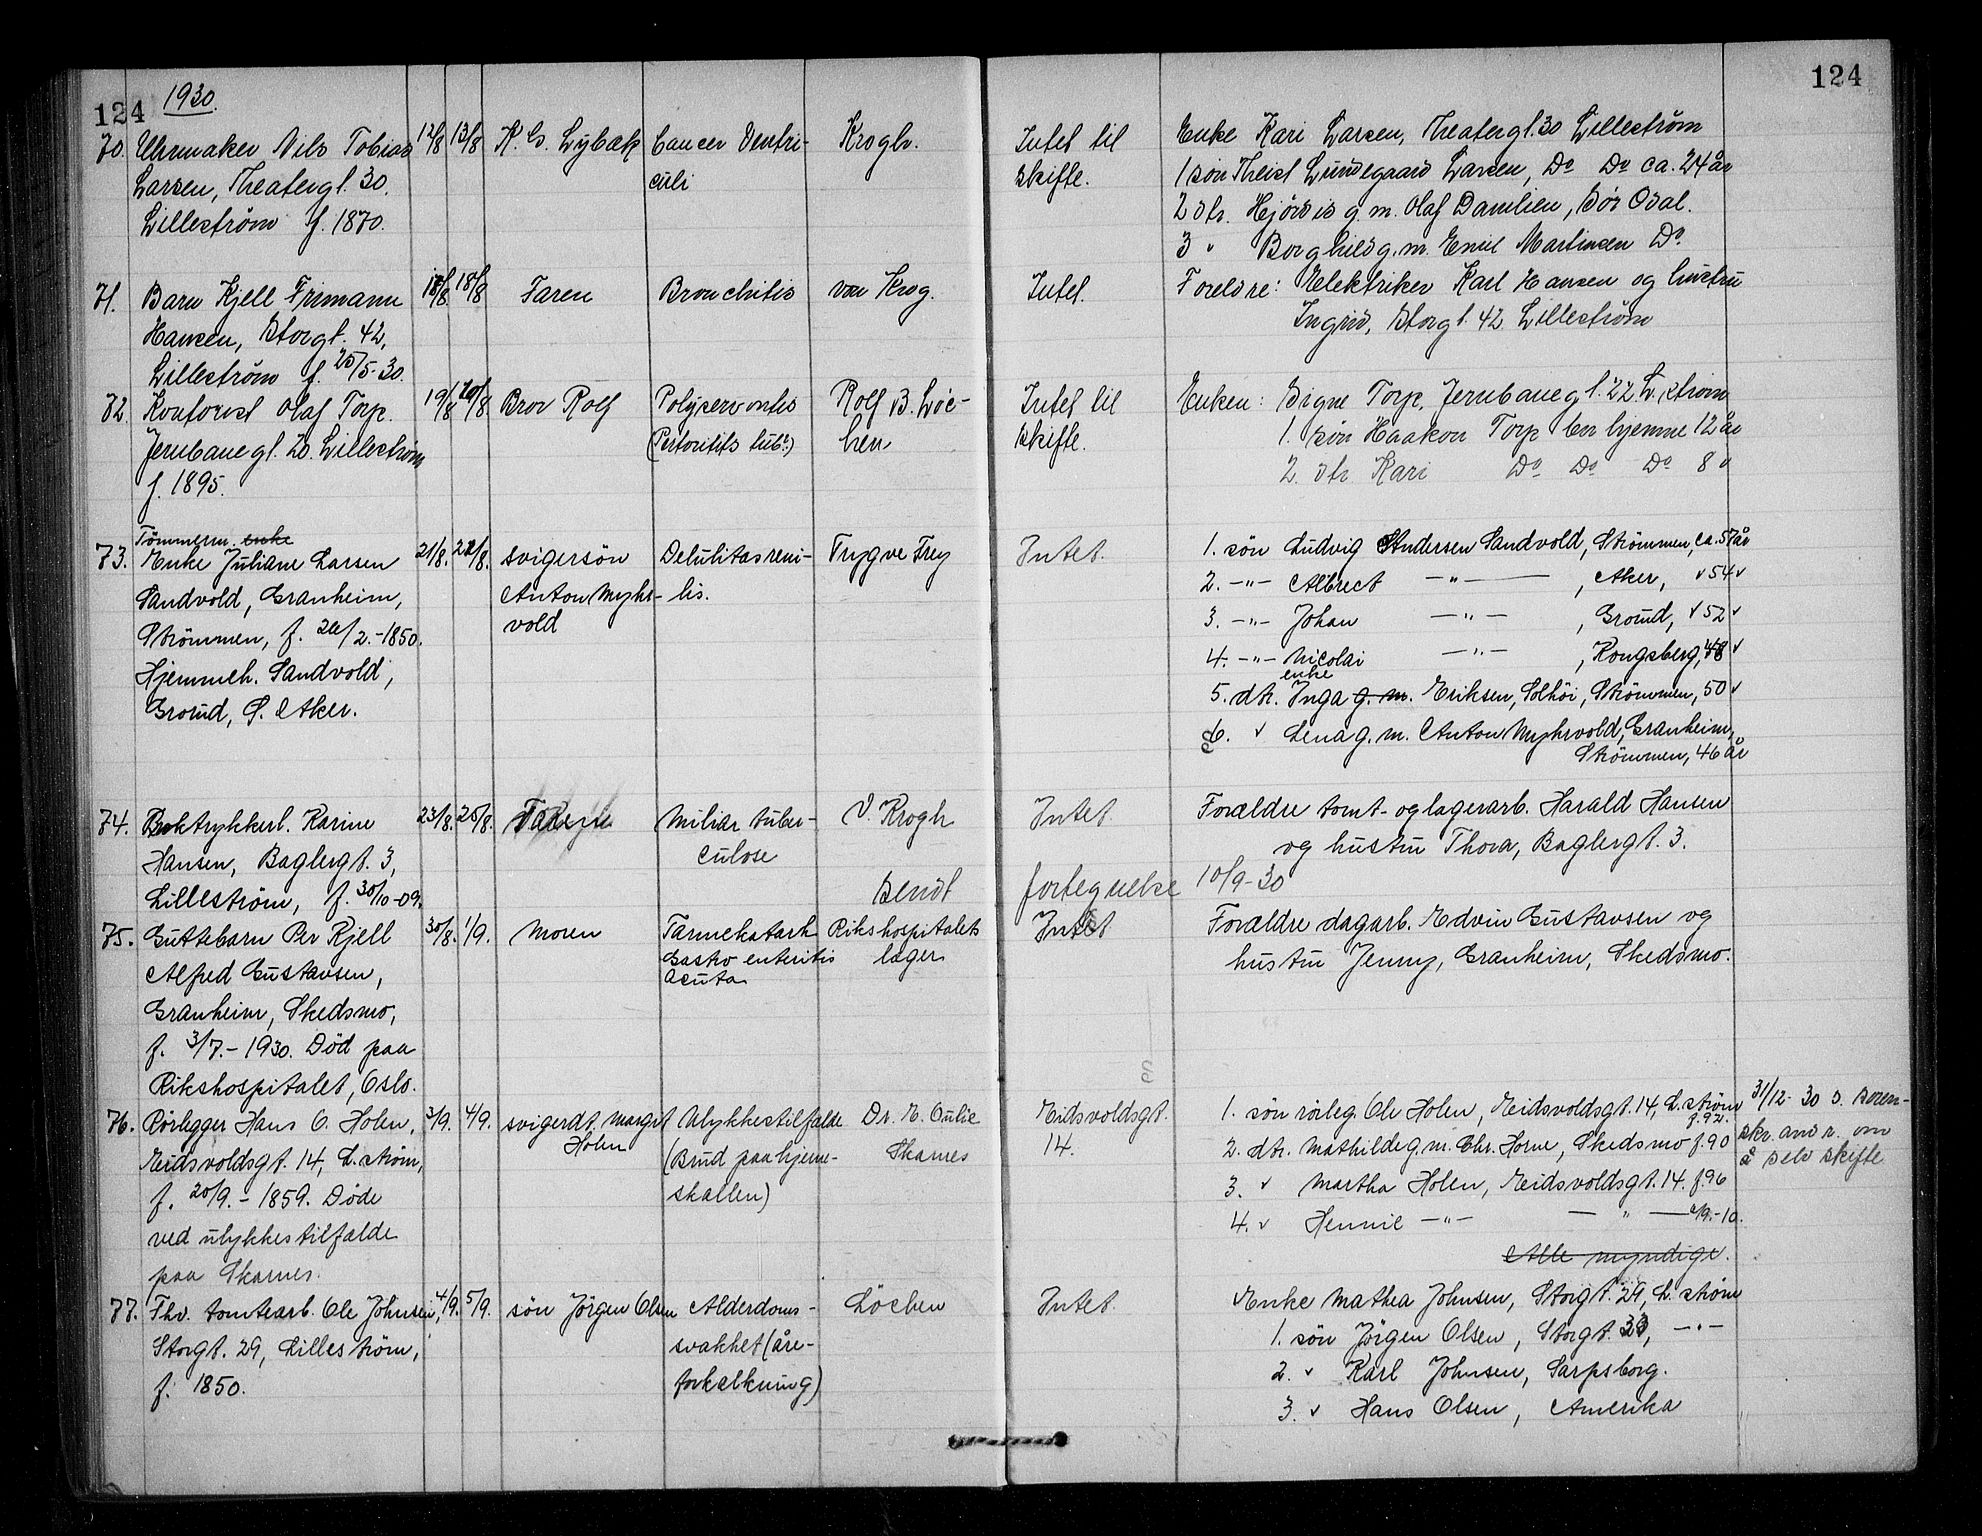 124 1930. 124
70. Uhrmaker Nils Tobias 12/8 13/8 K. G. Lybæk Cancer Ventri- Krogh. Intet til Enke Kari Larsen, Theatergt. 30 Lillestrøm
Larsen, Theatergt. 30. culi skifte. 1 søn Theist Lundegaard Larsen, Do Do ca. 24 år
Lillestrøm f. 1870. 2 dtr. Hjørdis g.m. Olaf Danilien, Sør Odal.
3 " Borghild g.m. Emil Martinsen Do
71. Barn Kjell Frimann 18/8 18/8 Faren Bronchitis von Krog. Intet. Foreldre: Elektriker Karl Hansen og hustru
Hansen, Storgt. 42, Ingrid, Storgt. 42 Lillestrøm
Lillestrøm f. 25/5-30.
72. Kontorist Olaf Torp. 19/8 20/8 Bror Rolf Polyserositis Rolf B. Löc- Intet til Enken: Signe Torp, Jernbanegt. 22 L.strøm
Jernbanegt. 22. Lillestrøm (Peritonitis tub.) hen skifte. 1. søn Haakon Torp bor hjemme 12 år
f. 1895. 2. dtr Kari Do Do Do 8 "
Tömmerm. enke
73. Enke Juliane Larsen 21/8. 22/8. svigersön Debilitas seni- Trygve Frey Intet. 1. søn Ludvig Andersen Sandvold, Strömmen, ca. 57 år
Sandvold, Granheim, Anton Myhr- lis. 2. -"- Albrect -"- , Aker, " 54 "
Strömmen, f. 26/2.-1850. vold 3. -"- Johan -"- , Grorud, " 52 "
Hjemmeh. Sandvold, 4. -"- Nicolai -"- , Kongsberg, 48 "
enke
Grorud, Ö. Aker. 5. dtr. Inga g.m. Eriksen, Solhöi, Strömmen, 50 "
6. " Lena g.m. Anton Myhrvold, Granheim,
Strömmen, 46 år
74. Boktrykkerl. Karine 23/8. 25/8. Faren Miliær tuber- V. Krogh Intet. Forældre tomt- og lagerarb. Harald Hansen
Hansen, Baglergt. 3, culose og hustru Thora, Baglergt. 3.
Lilleström, f. 30/10-09. Sendt fortegnelse 10/9-30
75. Guttebarn Per Kjell 30/8. 1/9. Moren Tarmekatarh Rikshospitalets Intet Forældre dagarb. Edvin Gustavsen og
Alfred Gustavsen, Gastro enteritis læger hustru Jenny, Granheim, Skedsmo.
Granheim, Skedsmo, acuta
f. 3/7.-1930. Död paa
Rikshospitalet, Oslo.
76. Rörlegger Hans O. Holen, 3/9. 4/9. svigerdt. Margit Ulykkestilfælde Dr. E. Eidsvoldsgt. 1. søn rörleg. Ole Holen, Eidsvoldsgt. 14, L.ström f. 92. 31/12-30 s. soren-
Eidsvoldsgt. 14, L.ström, Holen (Brud paa hjerne- Skarnes 14. 2. dtr. Mathilde g.m. Chr. Horne, Skedsmo f. 90 skr. andr. om
f. 20/9.-1859. Döde skallen) 3. " Martha Holen, Eidsvoldsgt. 14. f. 96 å selv skifte
ved ulykkestilfælde 4. " Hennie -"- -"- /9.-10.
paa Skarnes. Alle myndige.
77. Fhv. tomtearb. Ole Johnsen, 4/9. 5/9. sön Jörgen Olsen Alderdoms- Löchen Intet. Enke Mathea Johnsen, Storgt. 29, L.ström
Storgt. 29, Lilleström, svakhet (åre- 1. sön Jörgen Olsen, Storgt. 33, -"-
f. 1850. forkalkning) 2. " Karl Johnsen, Sarpsborg.
3. " Hans Olsen, Amerika